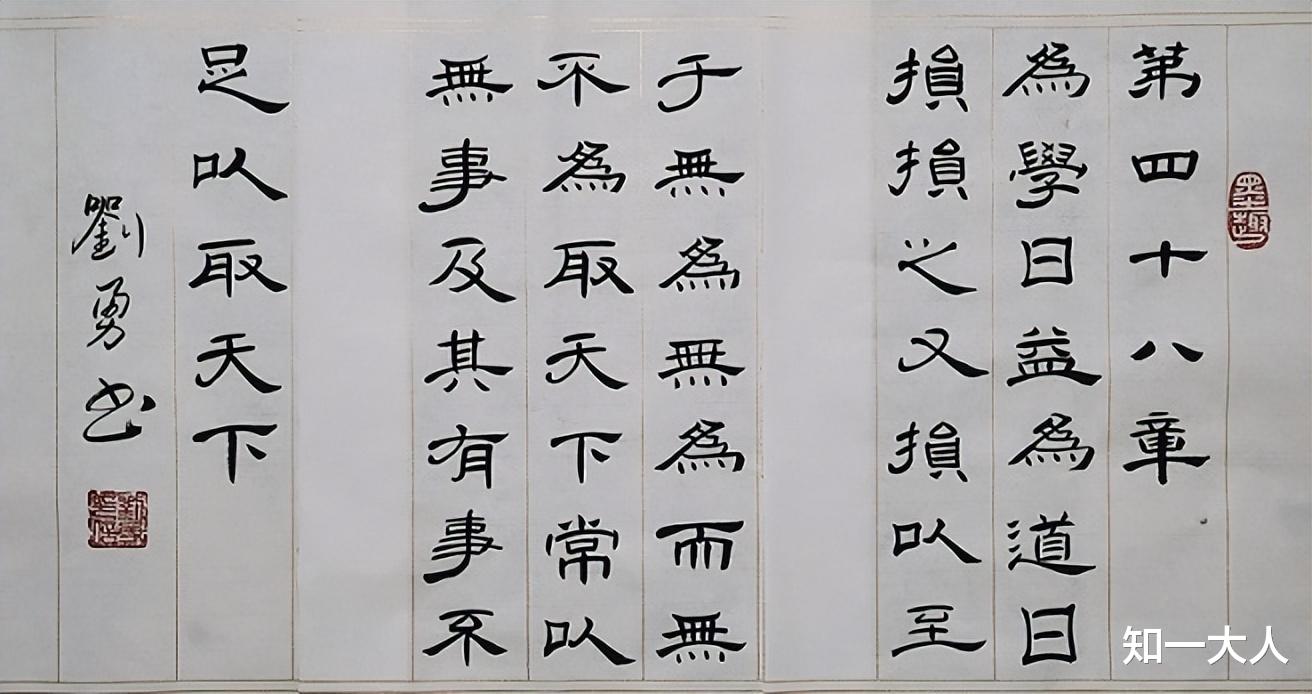 第四十八章
為學日益為道日
損損之又損以至
于無為無為而無
不為取天下常以
無事及其有事不
足以取天下
劉勇书
墨趣
知一大人